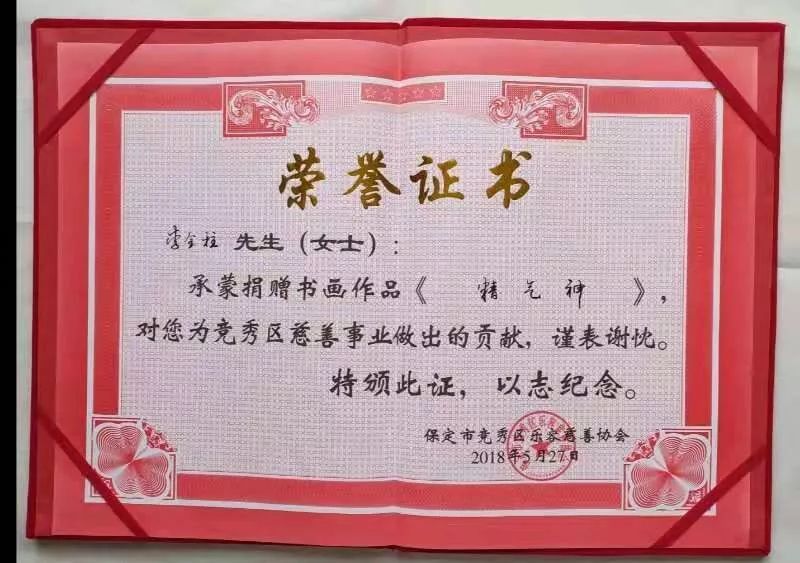 荣誉证书
李全柱 先生（女士）：
承蒙捐赠书画作品《 精气神 》，
对您为竞秀区慈善事业做出的贡献，谨表谢忱。
特颁此证，以志纪念。
保定市竞秀区乐容慈善协会
2018年5月27日